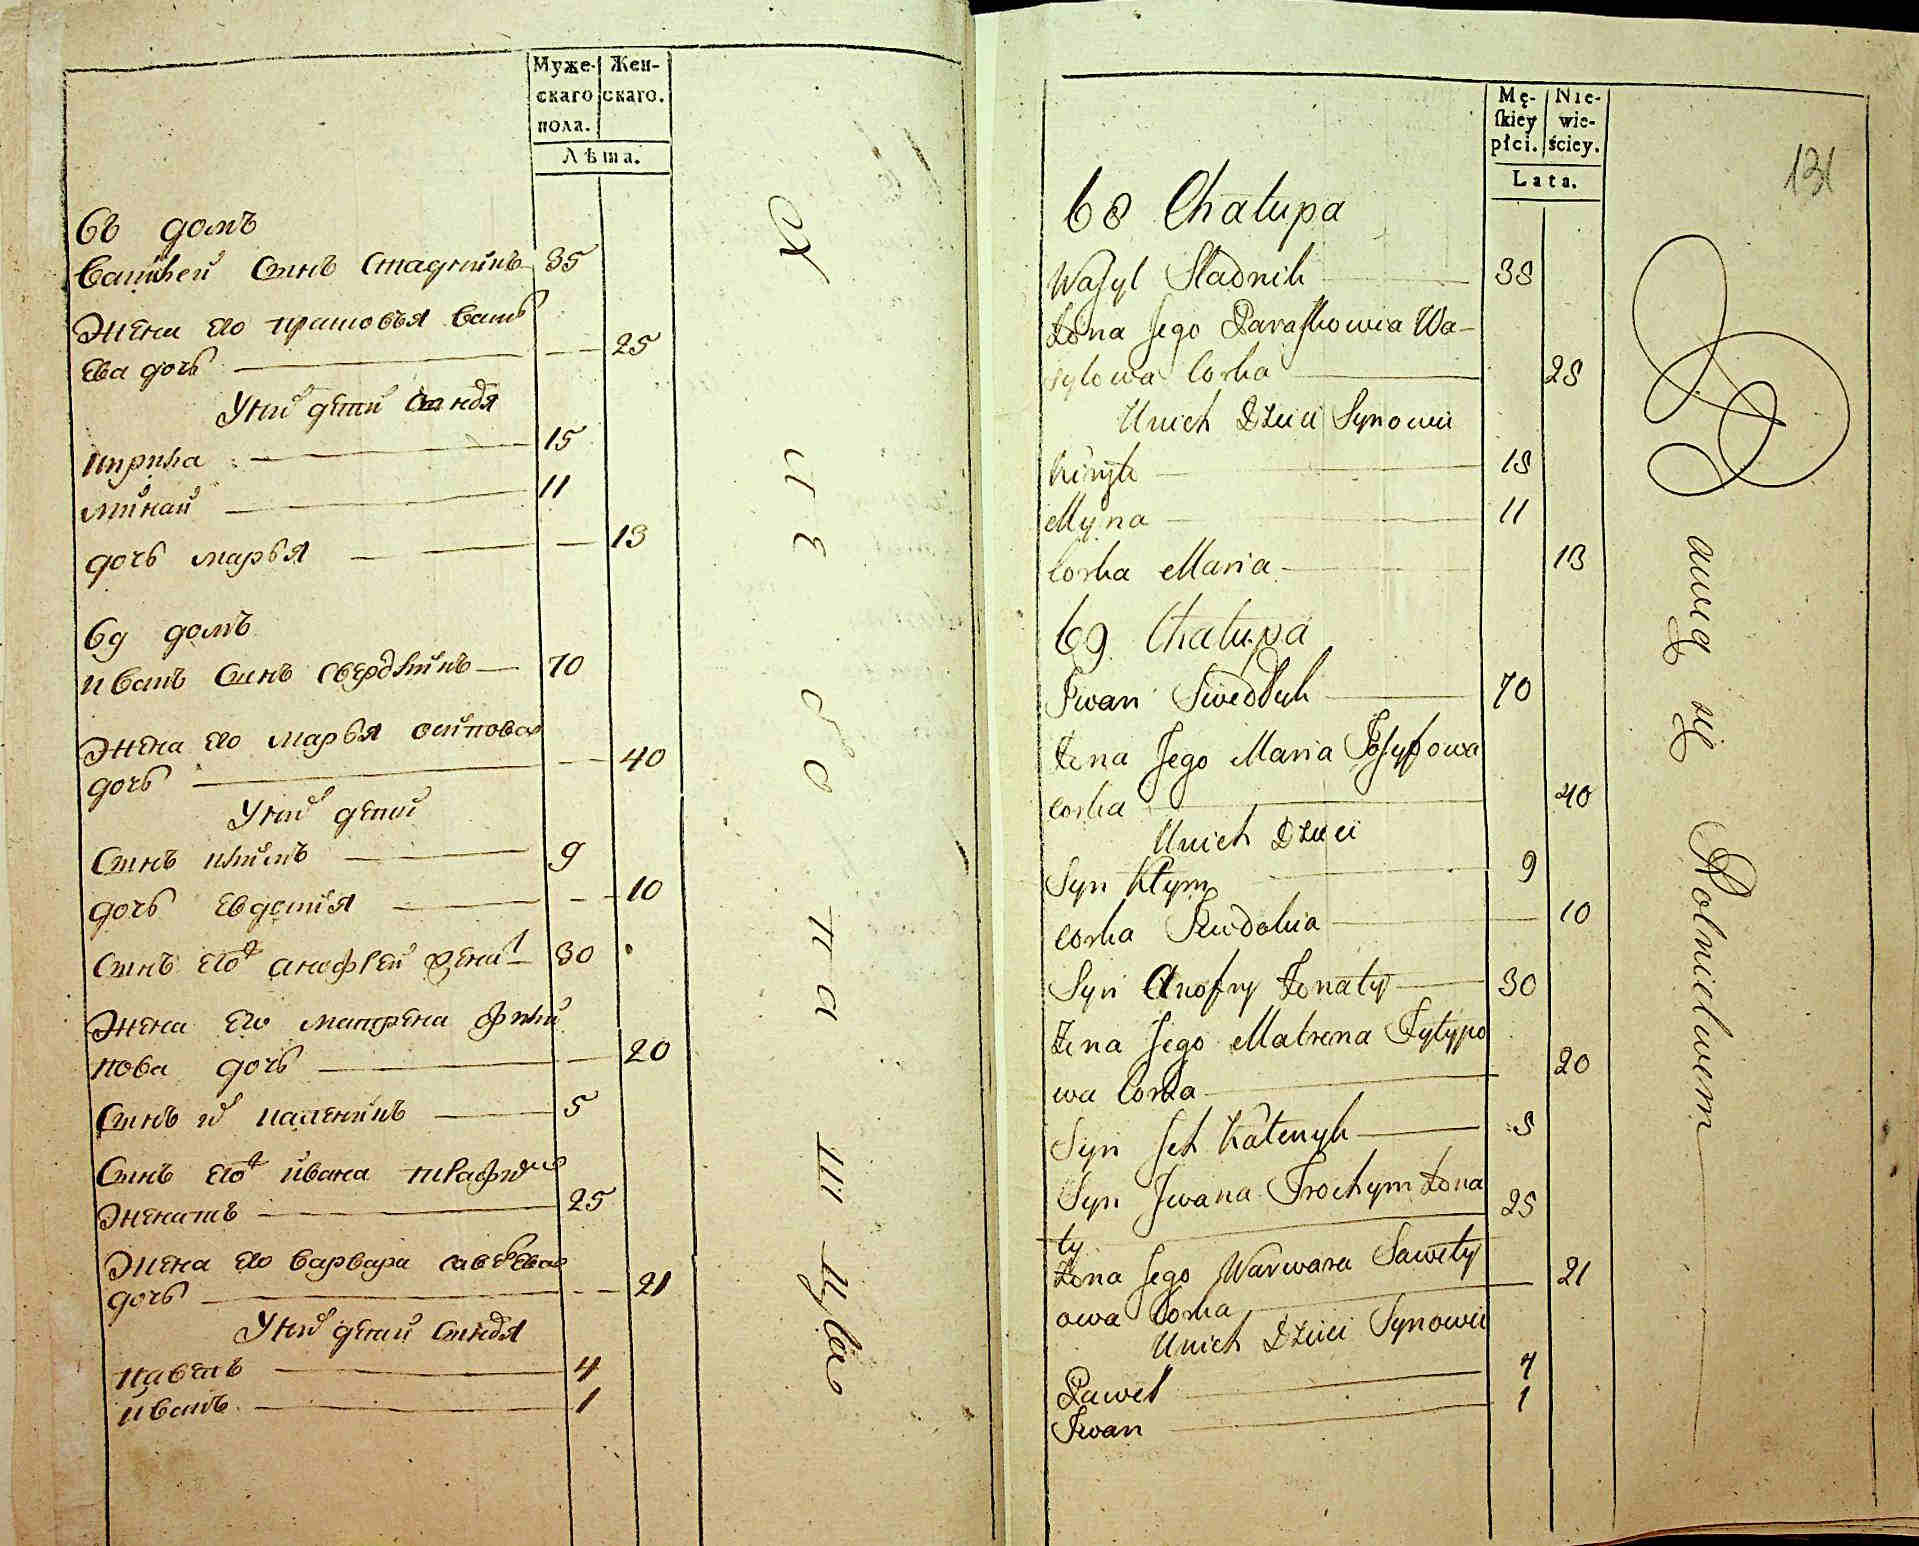 Муже-
скаго
пола.
Жен-
скаго.
Лѣта.
68 домъ
Василей синъ Стадникъ 35
Жена его прасковья васил
ева дочь 25
У них дети синовя
кирила 15
минай 11
дочь марья 13
69 домъ
иванъ синъ свердликъ 70
Жена его марья осипова
дочь 40
У них дети
Синъ климъ 9
дочь евдокия 10
Синъ его анофрей женат 30
Жена его матрена фили
пова дочь 20
Синъ их каленикъ 5
Синъ его ивана трафим
женатъ 25
Жена его варвара савелева
дочь 21
У них дети синовя
павелъ 4
иванъ 1
Х
ле
бо
па
ш
цы
Mę-
skiey
płci.
Nie-
wie-
ściey.
Lata.
131
68 Chałupa
Wasyl Stadnik 38
Żona Jego Paraskowia Wa-
sylowa Corka 28
Unich Dzieci Synowie
Kiryło 18
Myna 11
Corka Maria 13
69 Chałupa
Iwan Swedłyk 70
Żona Jego Maria Josypowa
Corka 40
Unich Dzieci
Syn Kłym 9
Corka Ewdokia 10
Syn Anofry Żonaty 30
Żona Jego Matrena Fylypo
wa Corka 20
Syn Ich Kałenyk 5
Syn Iwana Trochym Żona
ty 25
Żona Jego Warwara Sawely
owa Corka 21
Unich Dzieci Synowie
Paweł 4
Iwan 1
Bawią się Rolnictwem